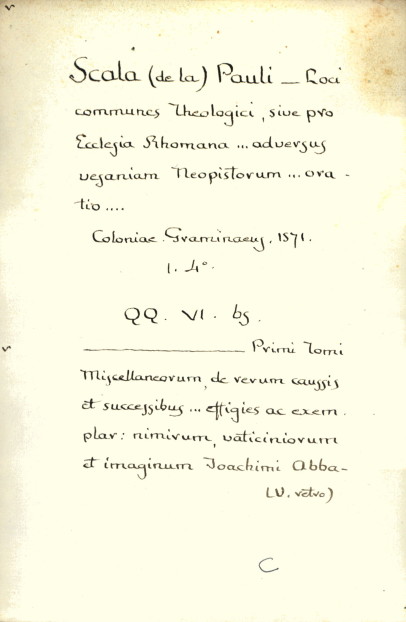 Scala (de la) Pauli — Loci
communes Theologici, sive pro
Ecclesia Rhomana ... adversus
vesaniam Neopistorum ... ora -
tio ....
Coloniae. Graminaeus, 1571.
1. 4°.
QQ. VI. 65.
Primi Tomi
Miscellaneorum, de rerum caussis
et successibus ... effigies ac exem.
plar: nimirum, vaticiniorum
et imaginum Joachimi Abba-
(V. retro)
C